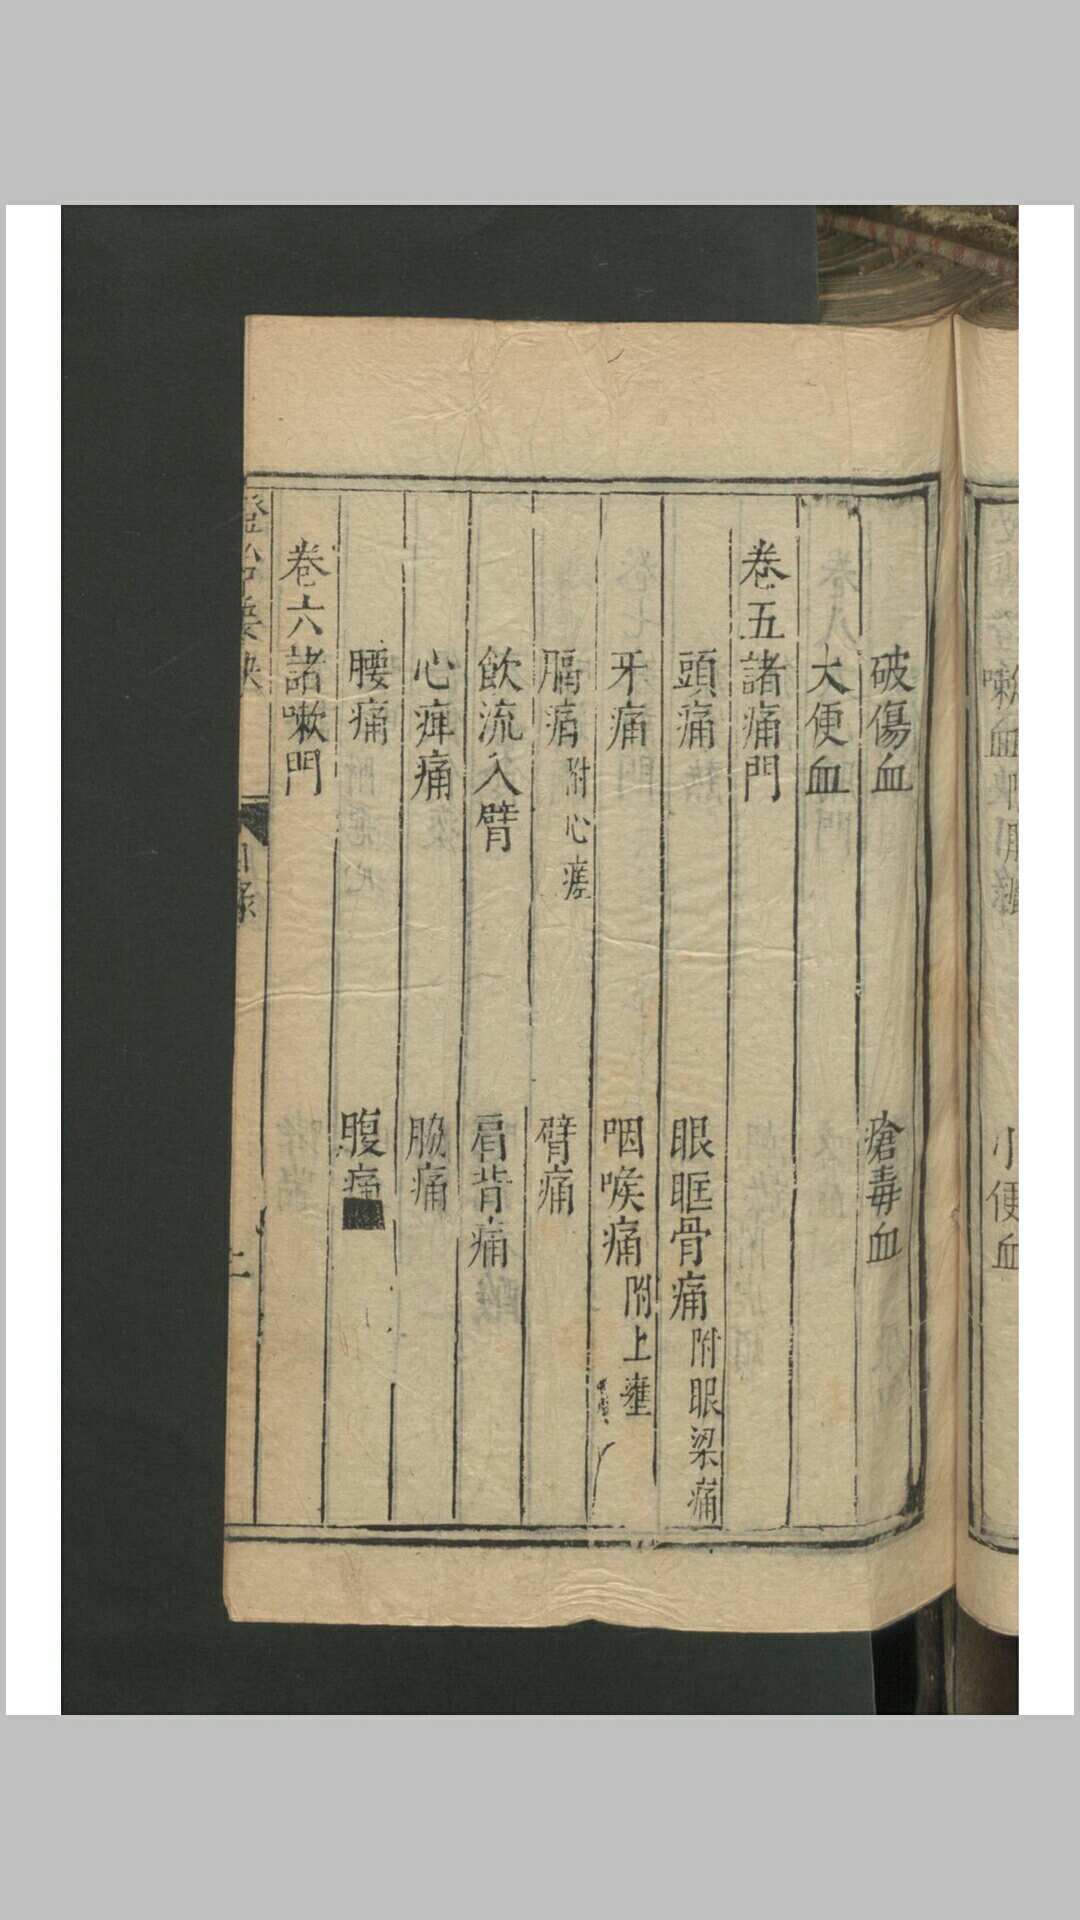 小便血
破傷血
瘡毒血
大便血
卷五諸痛門
頭痛
眼眶骨痛附眼梁痛
牙痛
咽喉痛附上壅
膈痛附心瘧
臂痛
飲流入臂
肩背痛
心痺痛
脇痛
腰痛
腹痛
卷六諸嗽門
證治要訣
目錄
二